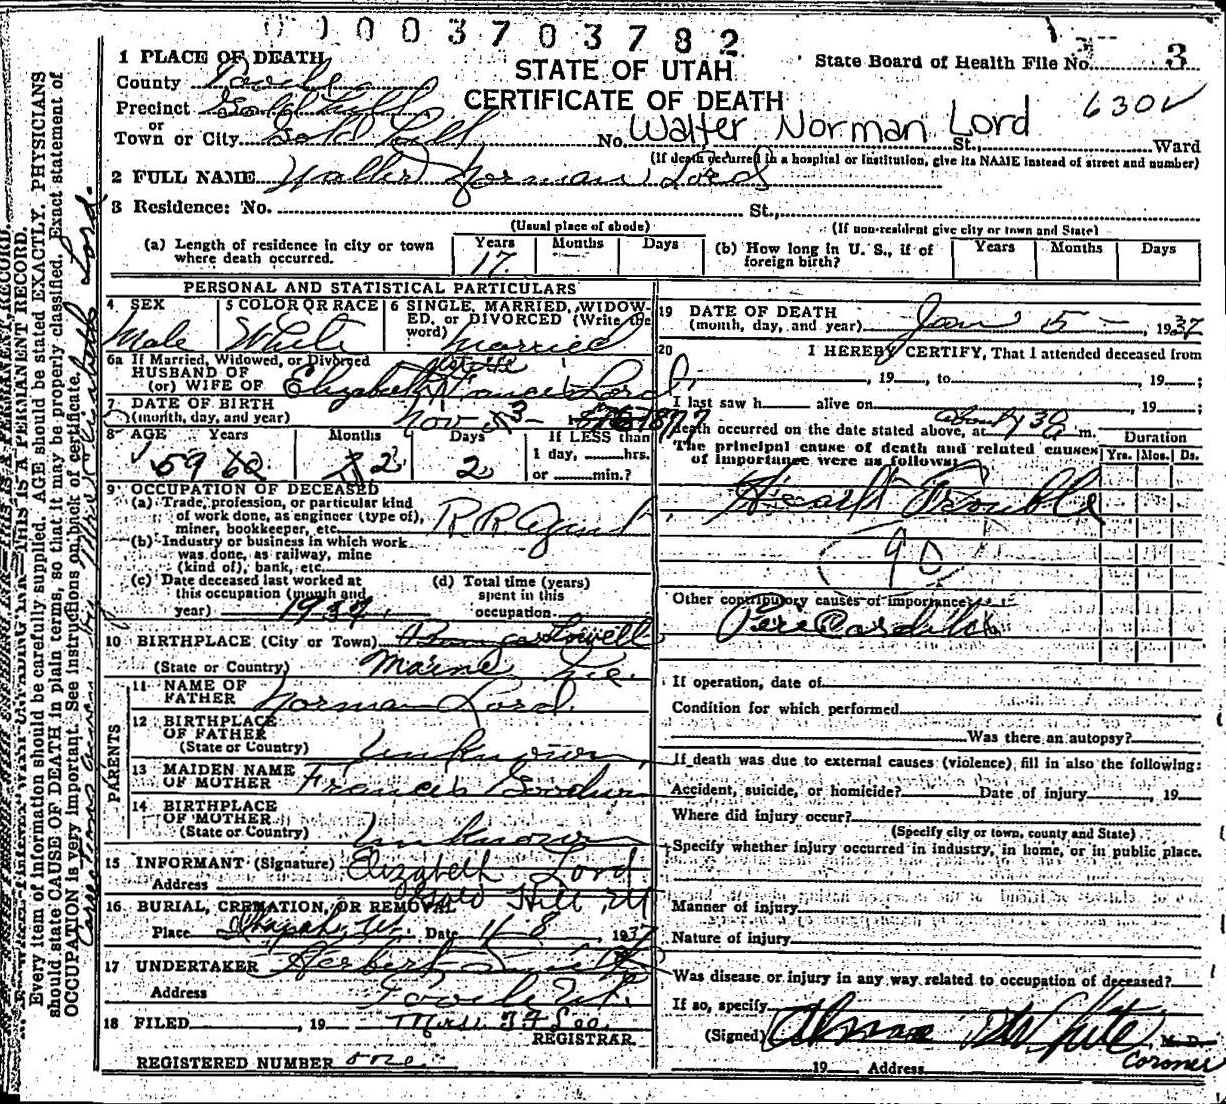 0 0 0 0 3 7 0 3 7 8 2
1 PLACE OF DEATH
STATE OF UTAH
CERTIFICATE OF DEATH
State Board of Health File No. 3
630
County Tooele
Precinct Gold Hill
or
Town or City Gold Hill No. Walter Norman Lord St., Ward
(If death occurred in a hospital or institution, give its NAME instead of street and number)
2 FULL NAME Walter Norman Lord
3 Residence: No. St.,
(Usual place of abode) (If non-resident give city or town and State)
(a) Length of residence in city or town where death occurred. Years 17 Months Days
(b) How long in U. S., if of foreign birth? Years Months Days
PERSONAL AND STATISTICAL PARTICULARS
4 SEX Male
5 COLOR OR RACE White
6 SINGLE, MARRIED, WIDOWED, or DIVORCED (Write the word) Married
6a If Married, Widowed, or Divorced
HUSBAND OF
(or) WIFE OF Elizabeth Lord
7 DATE OF BIRTH
(month, day, and year) Nov 3 1877
8 AGE Years 59 Months 2 Days 2 If LESS than
1 day, hrs.
or min.?
9 OCCUPATION OF DECEASED
(a) Trade, profession, or particular kind of work done, as engineer (type of), miner, bookkeeper, etc. R.R. Agent
(b) Industry or business in which work was done, as railway, mine (kind of), bank, etc.
(c) Date deceased last worked at this occupation (month and year) 1937
(d) Total time (years) spent in this occupation
10 BIRTHPLACE (City or Town) Lowell
(State or Country) Maine
PARENTS
11 NAME OF FATHER Norman Lord
12 BIRTHPLACE OF FATHER
(State or Country) Unknown
13 MAIDEN NAME OF MOTHER Francis Goodwin
14 BIRTHPLACE OF MOTHER
(State or Country) Unknown
15 INFORMANT (Signature) Elizabeth Lord
Address Gold Hill, Ut
16 BURIAL, CREMATION, OR REMOVAL
Place Ibapah, Ut. Date 1-8 1937
17 UNDERTAKER Herbert
Address Tooele Ut.
18 FILED , 19 Mrs. J F Lee
REGISTRAR
REGISTERED NUMBER one
19 DATE OF DEATH
(month, day, and year) Jan 5 - , 1937
20 I HEREBY CERTIFY, That I attended deceased from
, 19 , to , 19 ;
I last saw h alive on , 19 ;
death occurred on the date stated above, at about 7 30 m.
The principal cause of death and related causes of importance were as follows: Duration
Yrs. Mos. Ds.
Heart Trouble
90
Other contributory causes of importance:
Pericarditis
If operation, date of
Condition for which performed
Was there an autopsy?
If death was due to external causes (violence) fill in also the following:
Accident, suicide, or homicide? Date of injury , 19
Where did injury occur?
(Specify city or town, county and State)
Specify whether injury occurred in industry, in home, or in public place.
Manner of injury
Nature of injury
Was disease or injury in any way related to occupation of deceased?
If so, specify
(Signed) M.D.
Coroner
19 Address
Every item of information should be carefully supplied. AGE should be stated EXACTLY. PHYSICIANS
should state CAUSE OF DEATH in plain terms, so that it may be properly classified. Exact statement of
OCCUPATION is very important. See instructions on back of certificate.